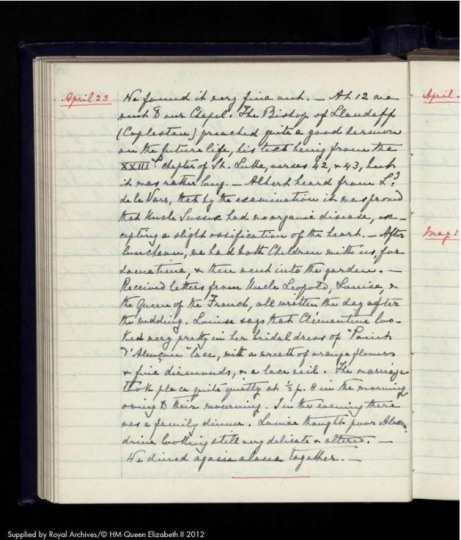 April 23
We found it very fine out. — At 12 we
went to our Chapel. The Bishop of Llandaff
(Copleston) preached quite a good sermon
on the future life, his text being from the
XXIIId Chapter of St. Luke, verses 42, & 43, but
it was rather long. — Albert heard from Ld
de la Warr, that by the examination it was proved
that Uncle Sussex had no organic disease, ex-
cepting a slight ossification of the heart. — After
luncheon, we had both Children with us, for
sometime, & then went into the garden. —
Received letters from Uncle Leopold, Louise, &
the Queen of the French, all written the day after
the wedding. Louise says that Clémentine loo-
ked very pretty in her bridal dress of "Point
d'Alençon" lace, with a wreath of orange flowers
& fine diamonds, & a lace veil. The marriage
took place quite quietly at ½ p. 8 in the morning
owing to their mourning. In the evening there
was a family dinner. Louise thought poor Alexan-
drine looking still very delicate & altered. —
We dined again alone together. —
April
May 1
Supplied by Royal Archives/© HM Queen Elizabeth II 2012